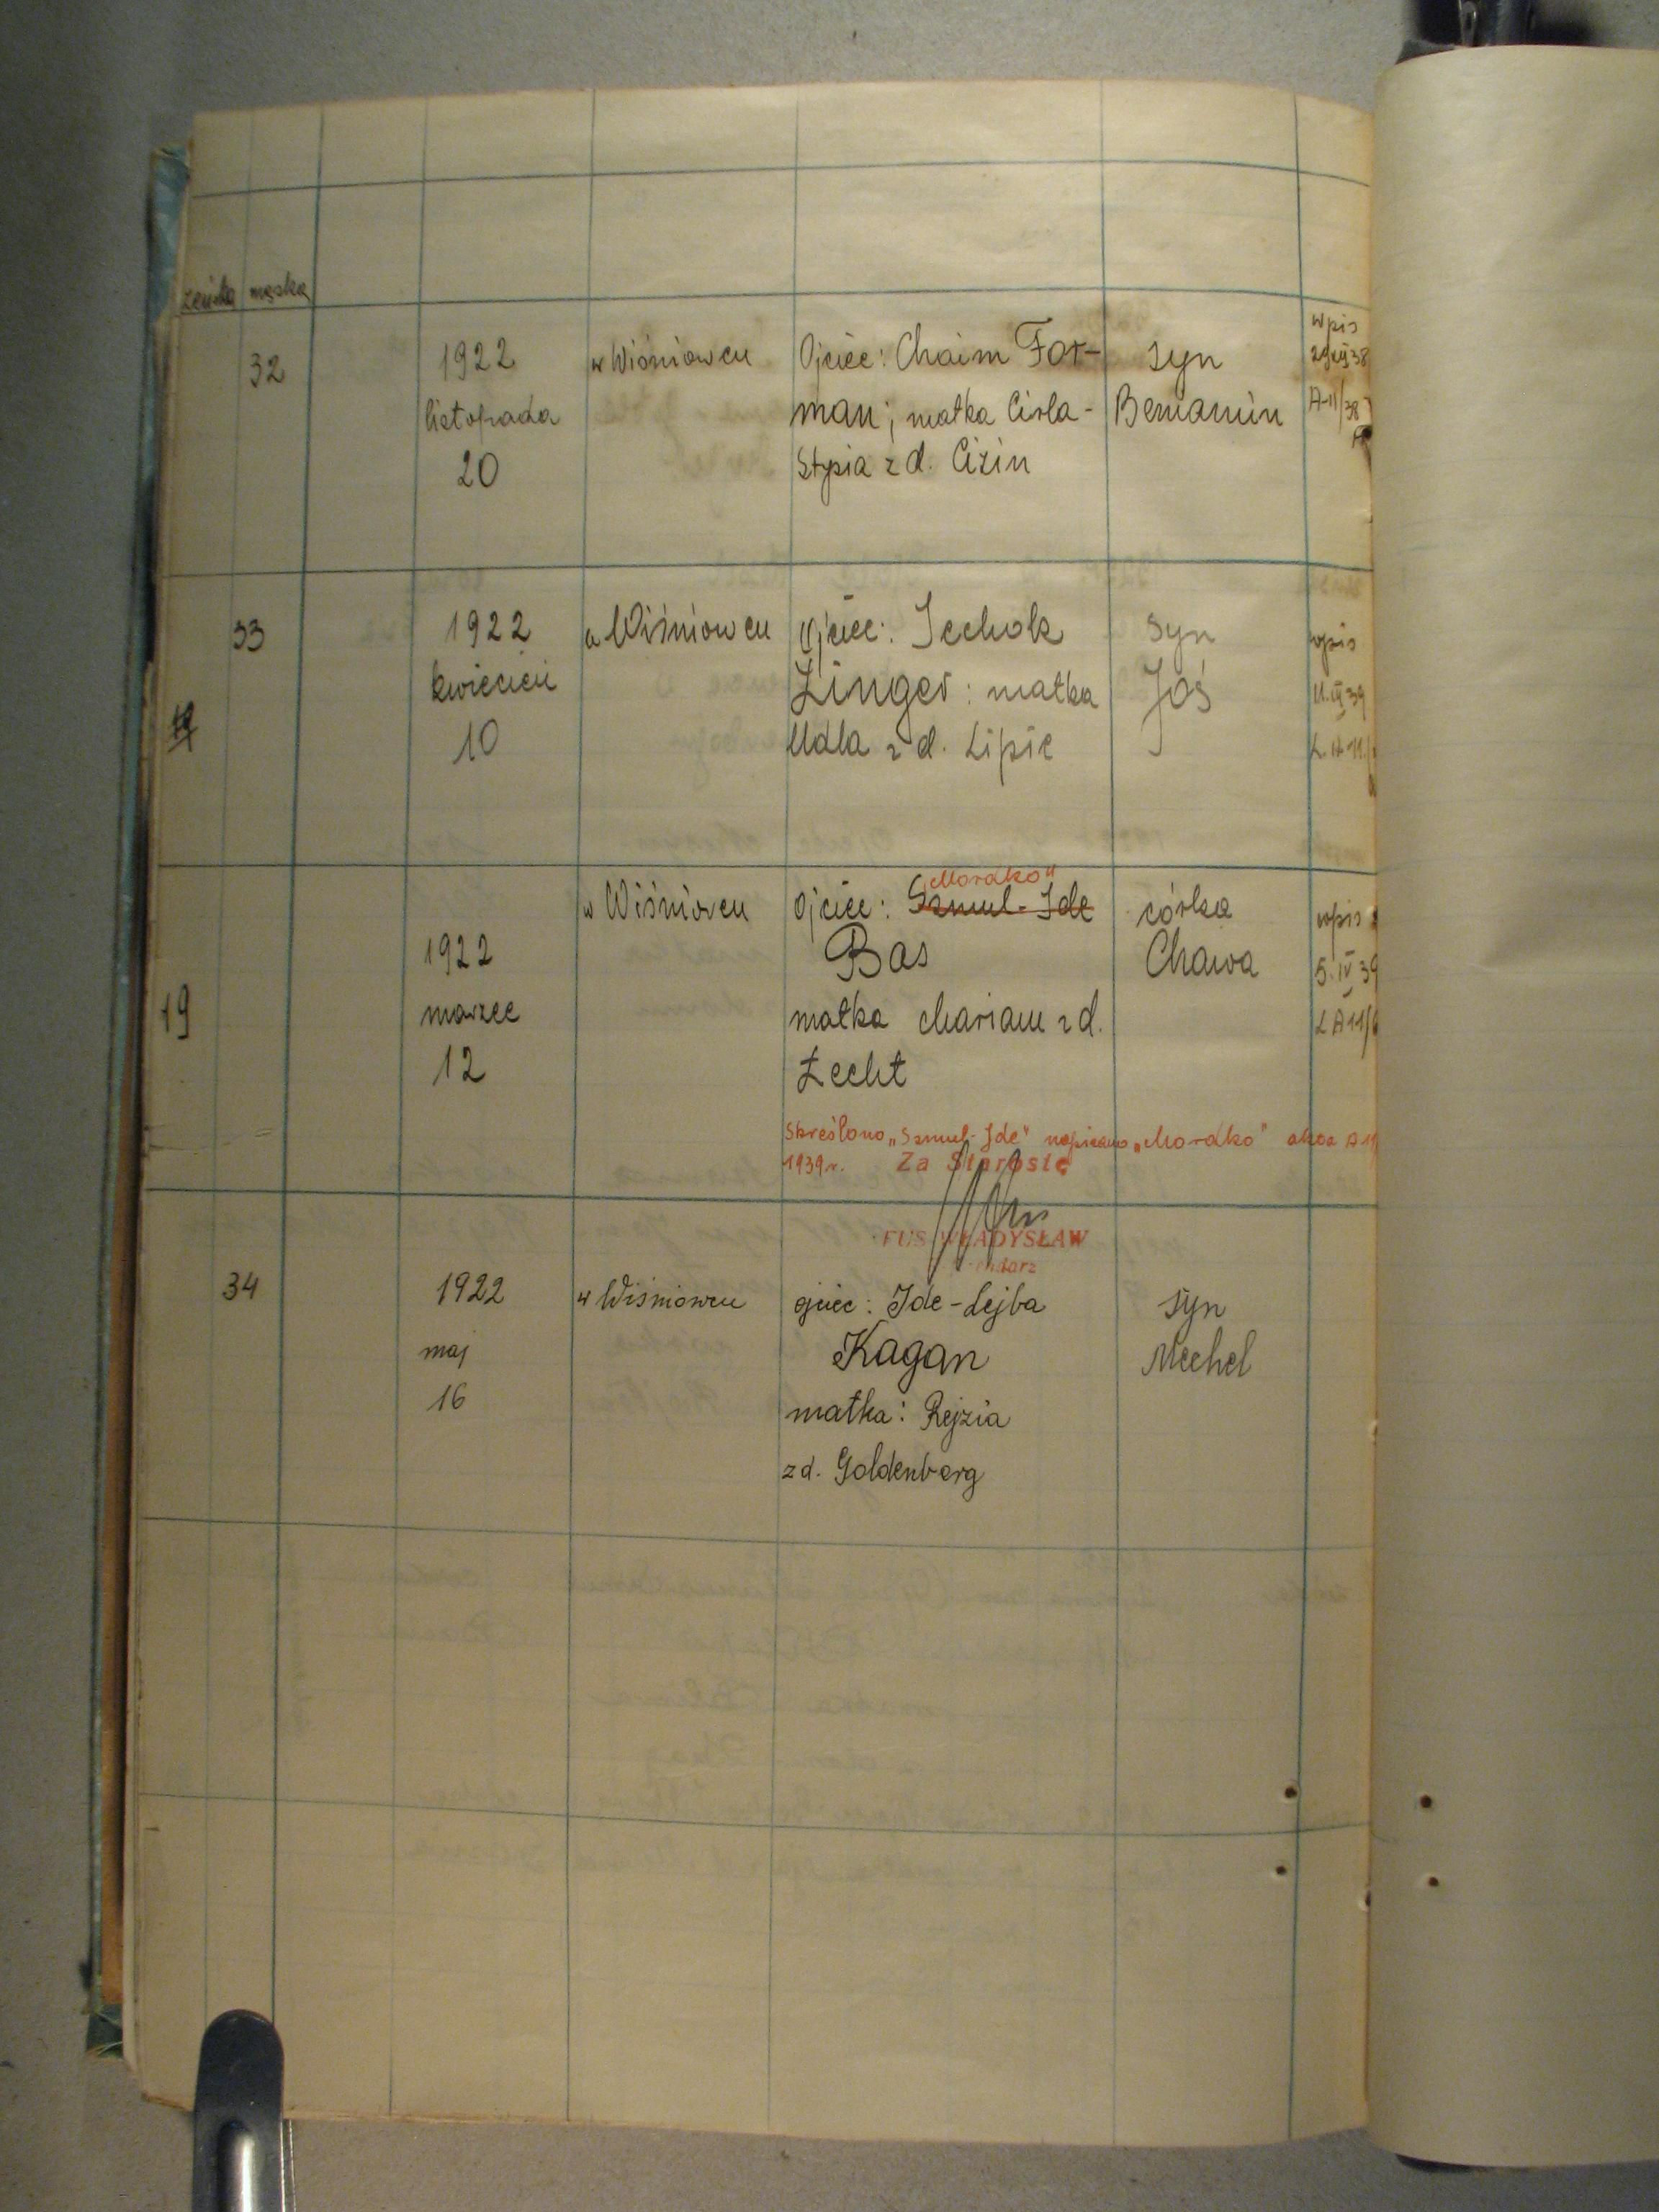 żeńska męska
32
1922
listopada
20
w Wiśniowcu
Ojciec: Chaim For-
man; matka Cirla-
Stysia z d. Cizin
syn
Beniamin
wpis
29 XII 38
A-11/38
33
1922
kwiecień
10
w Wiśniowcu
Ojciec: Icchok
Zinger: matka
Udla z d. Lipic
syn
Joś
wpis
11.III 39
L.A 11/
19
1922
marzec
12
w Wiśniowcu
„Mordko"
Ojciec: Szmul-Ide
Bas
matka Mariam z d.
Zecht
córka
Chawa
wpis
5.IV 39
L A 11/6
Skreślono „Szmul-Ide" napisano „Mordko" akta A 11
1939 r. Za Starostę
FUS WŁADYSŁAW
34
1922
maj
16
w Wiśniowcu
ojciec: Ide-Lejba
Kagan
matka: Rejzia
zd. Goldenberg
syn
Mechel